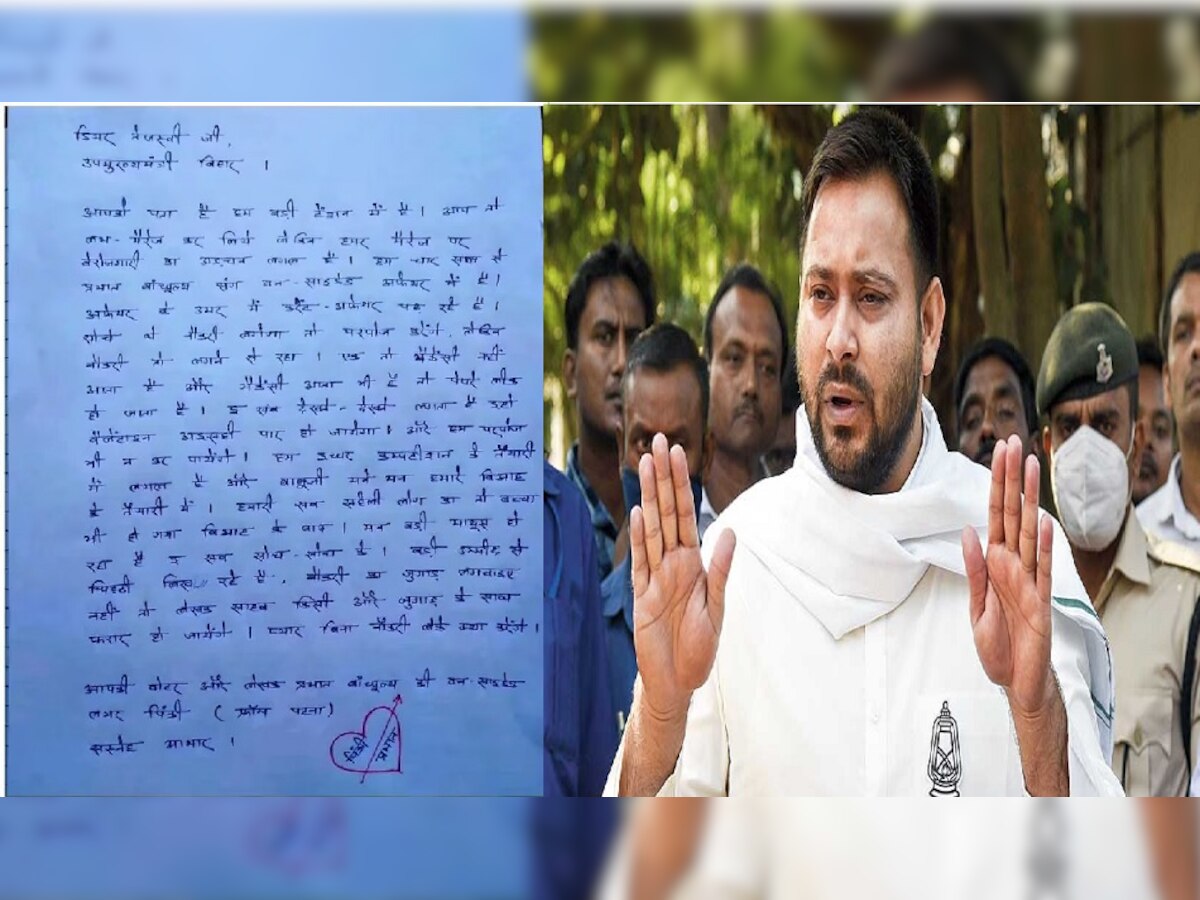 डियर तेजस्वी जी,
उपमुख्यमंत्री बिहार ।
आपको पता है हम बड़ी टेंशन में है । आप तो
लभ-मैरेज कर लिये लेकिन हमर मैरेज पर
बेरोजगारी का अड़चन लगल है । हम चार साल से
प्रभात बाँधुल्य संग वन-साइडेड अफेयर में है ।
अफेयर के उमर में करेंट-अफेयर पढ़ रहे है ।
सोचे थे नौकरी लगेगा तो परपोज करेंगे, लेकिन
नौकरी तो लगने से रहा । एक तो भैकेंसी नहीं
आता है और भैकेंसी आता भी है तो पेपरे लीक
हो जाता है । इ सब देखते-देखते लगता है इहो
भैलेंटाइन अइसही पार हो जायेगा । और हम परपोज
भी न कर पायेंगे । हम इधर कम्पटीशन के तैयारी
में लगल है और बाबूजी मने मन हमरे बिआह
के तैयारी में । हमारी सब सहेली लोग का तो बच्चा
भी हो गया बिआह के बाद । मन बड़ी मायूस हो
रहा है इ सब सोच-सोच के । बड़ी उम्मीद से
चिट्ठी लिख रहे है, नौकरी का जुगाड़ लगवाइए
नहीं तो लेखक साहब किसी और जुगाड़ के साथ
फरार हो जायेंगे । प्यार बिना नौकरी लेके क्या करेंगे ।
आपकी वोटर और लेखक प्रभात बाँधुल्य की वन-साइडेड
लभर पिंकी (फ्रॉम पटना)
सस्नेह आभार ।
पिंकी
प्रभात